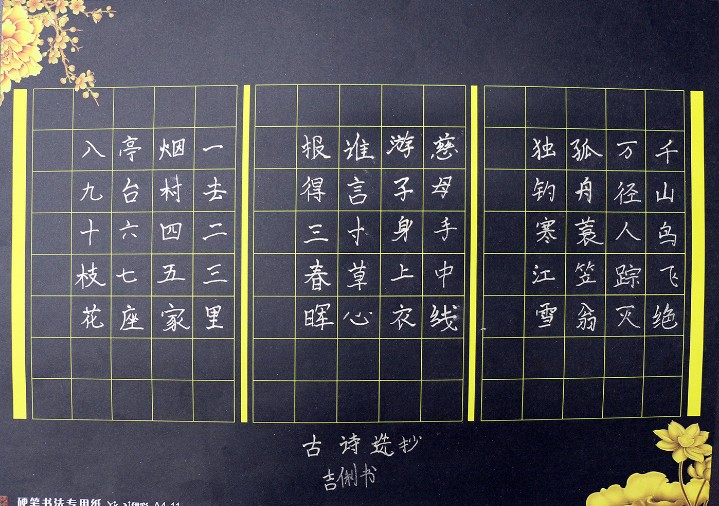 千山鸟飞绝
万径人踪灭
孤舟蓑笠翁
独钓寒江雪
慈母手中线
游子身上衣
谁言寸草心
报得三春晖
一去二三里
烟村四五家
亭台六七座
八九十枝花
古诗选抄
吉俐书
硬笔书法专用纸 A4-11